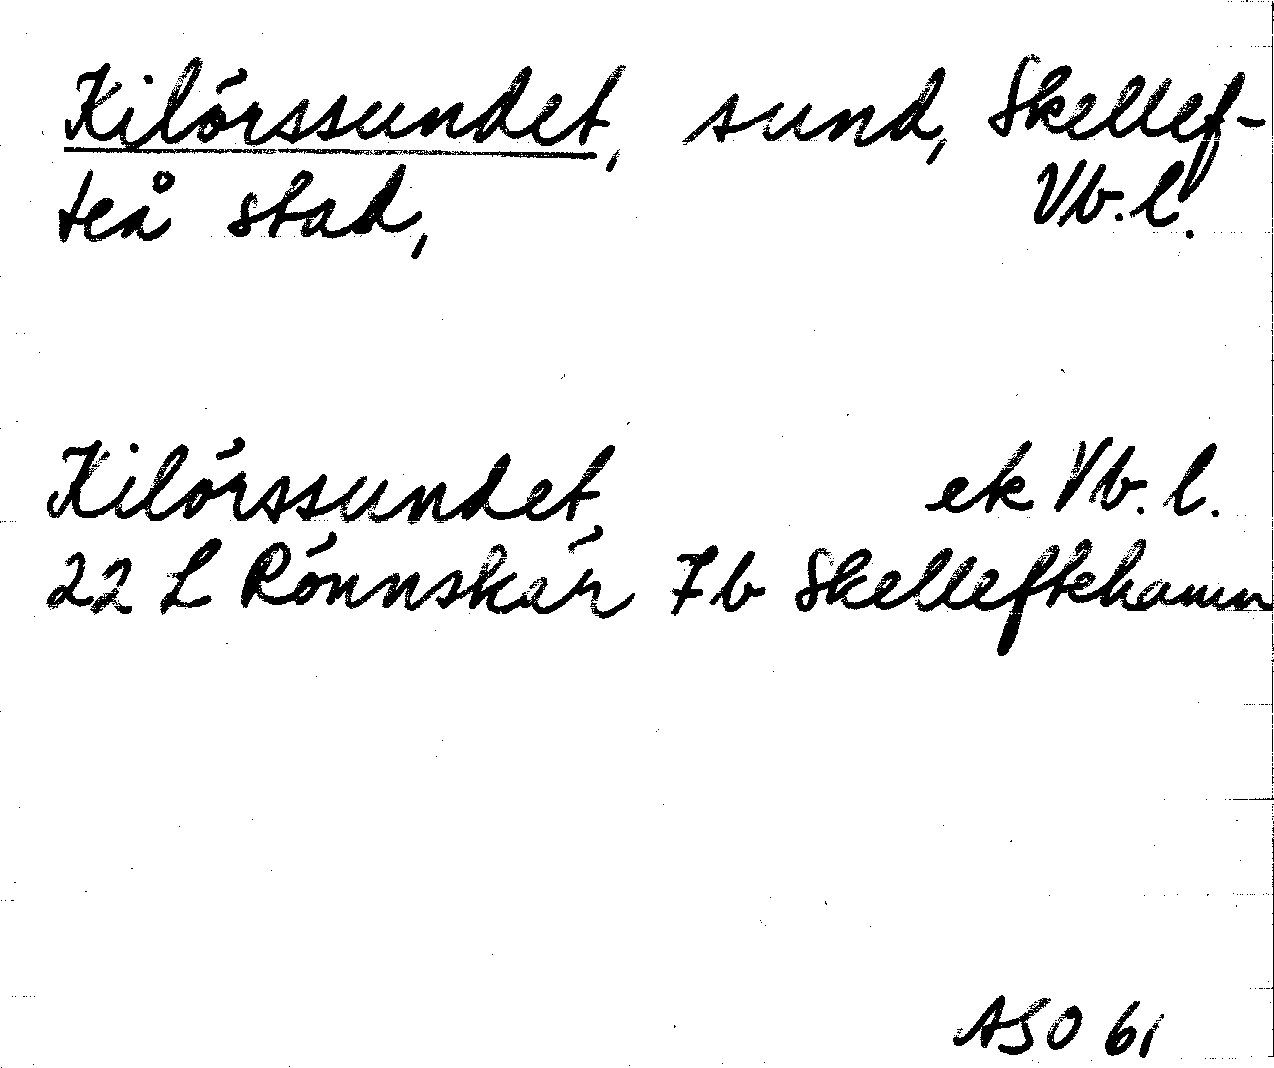 Kilörssundet, sund, Skellef-
teå stad, Vb. l.
Kilörssundet, ek Vb. l.
22 L Rönnskär 7b Skelleftehamn
ASO 61